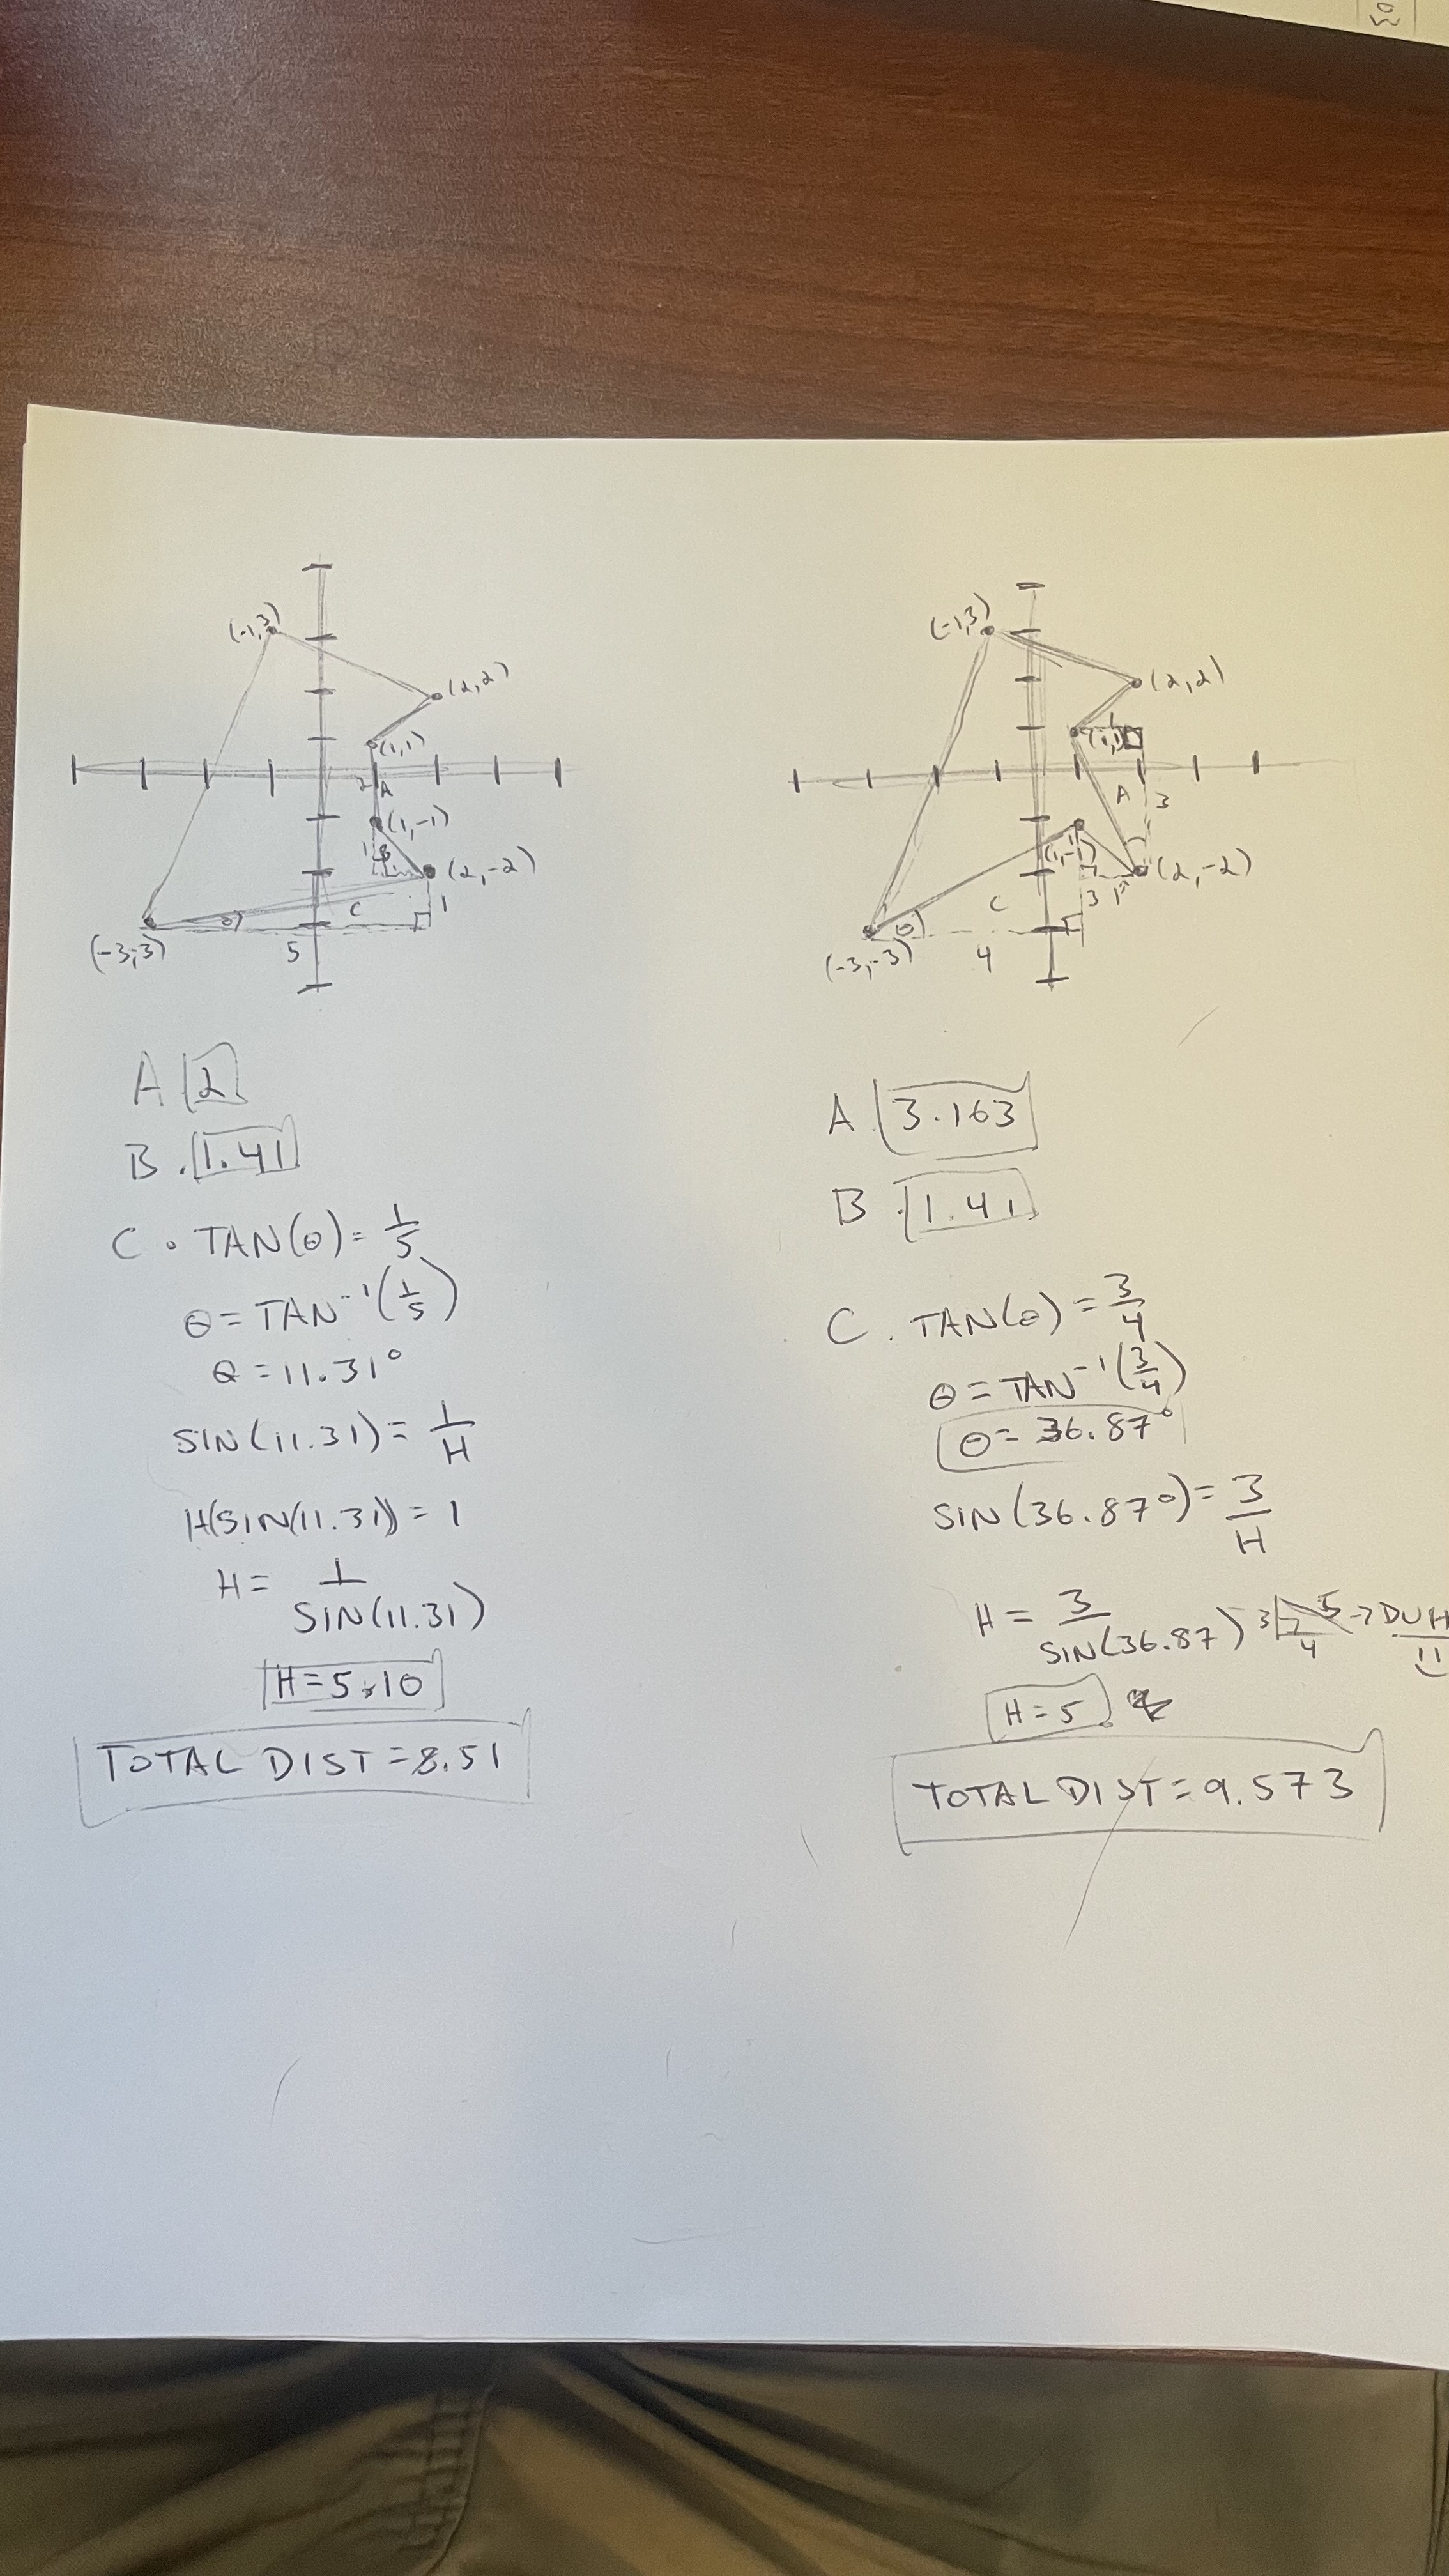 (-1,3)
(2,2)
(1,1)
2 A
(1,-1)
1 B
(2,-2)
1
C
θ
5
(-3,-3)
A 2
B. 1.41
C. TAN(θ) = 1/5
θ = TAN⁻¹(1/5)
θ = 11.31°
SIN(11.31) = 1/H
H(SIN(11.31)) = 1
H = 1/SIN(11.31)
H = 5.10
TOTAL DIST = 8.51
(-1,3)
(2,2)
1
(1,1)
A 3
(1,-1)
(2,-2)
C
3
1
θ
4
(-3,-3)
A. 3.163
B. 1.41
C. TAN(θ) = 3/4
θ = TAN⁻¹(3/4)
θ = 36.87°
SIN(36.87°) = 3/H
H = 3/SIN(36.87) 3 5 4 → DUH
H = 5.
TOTAL DIST = 9.573